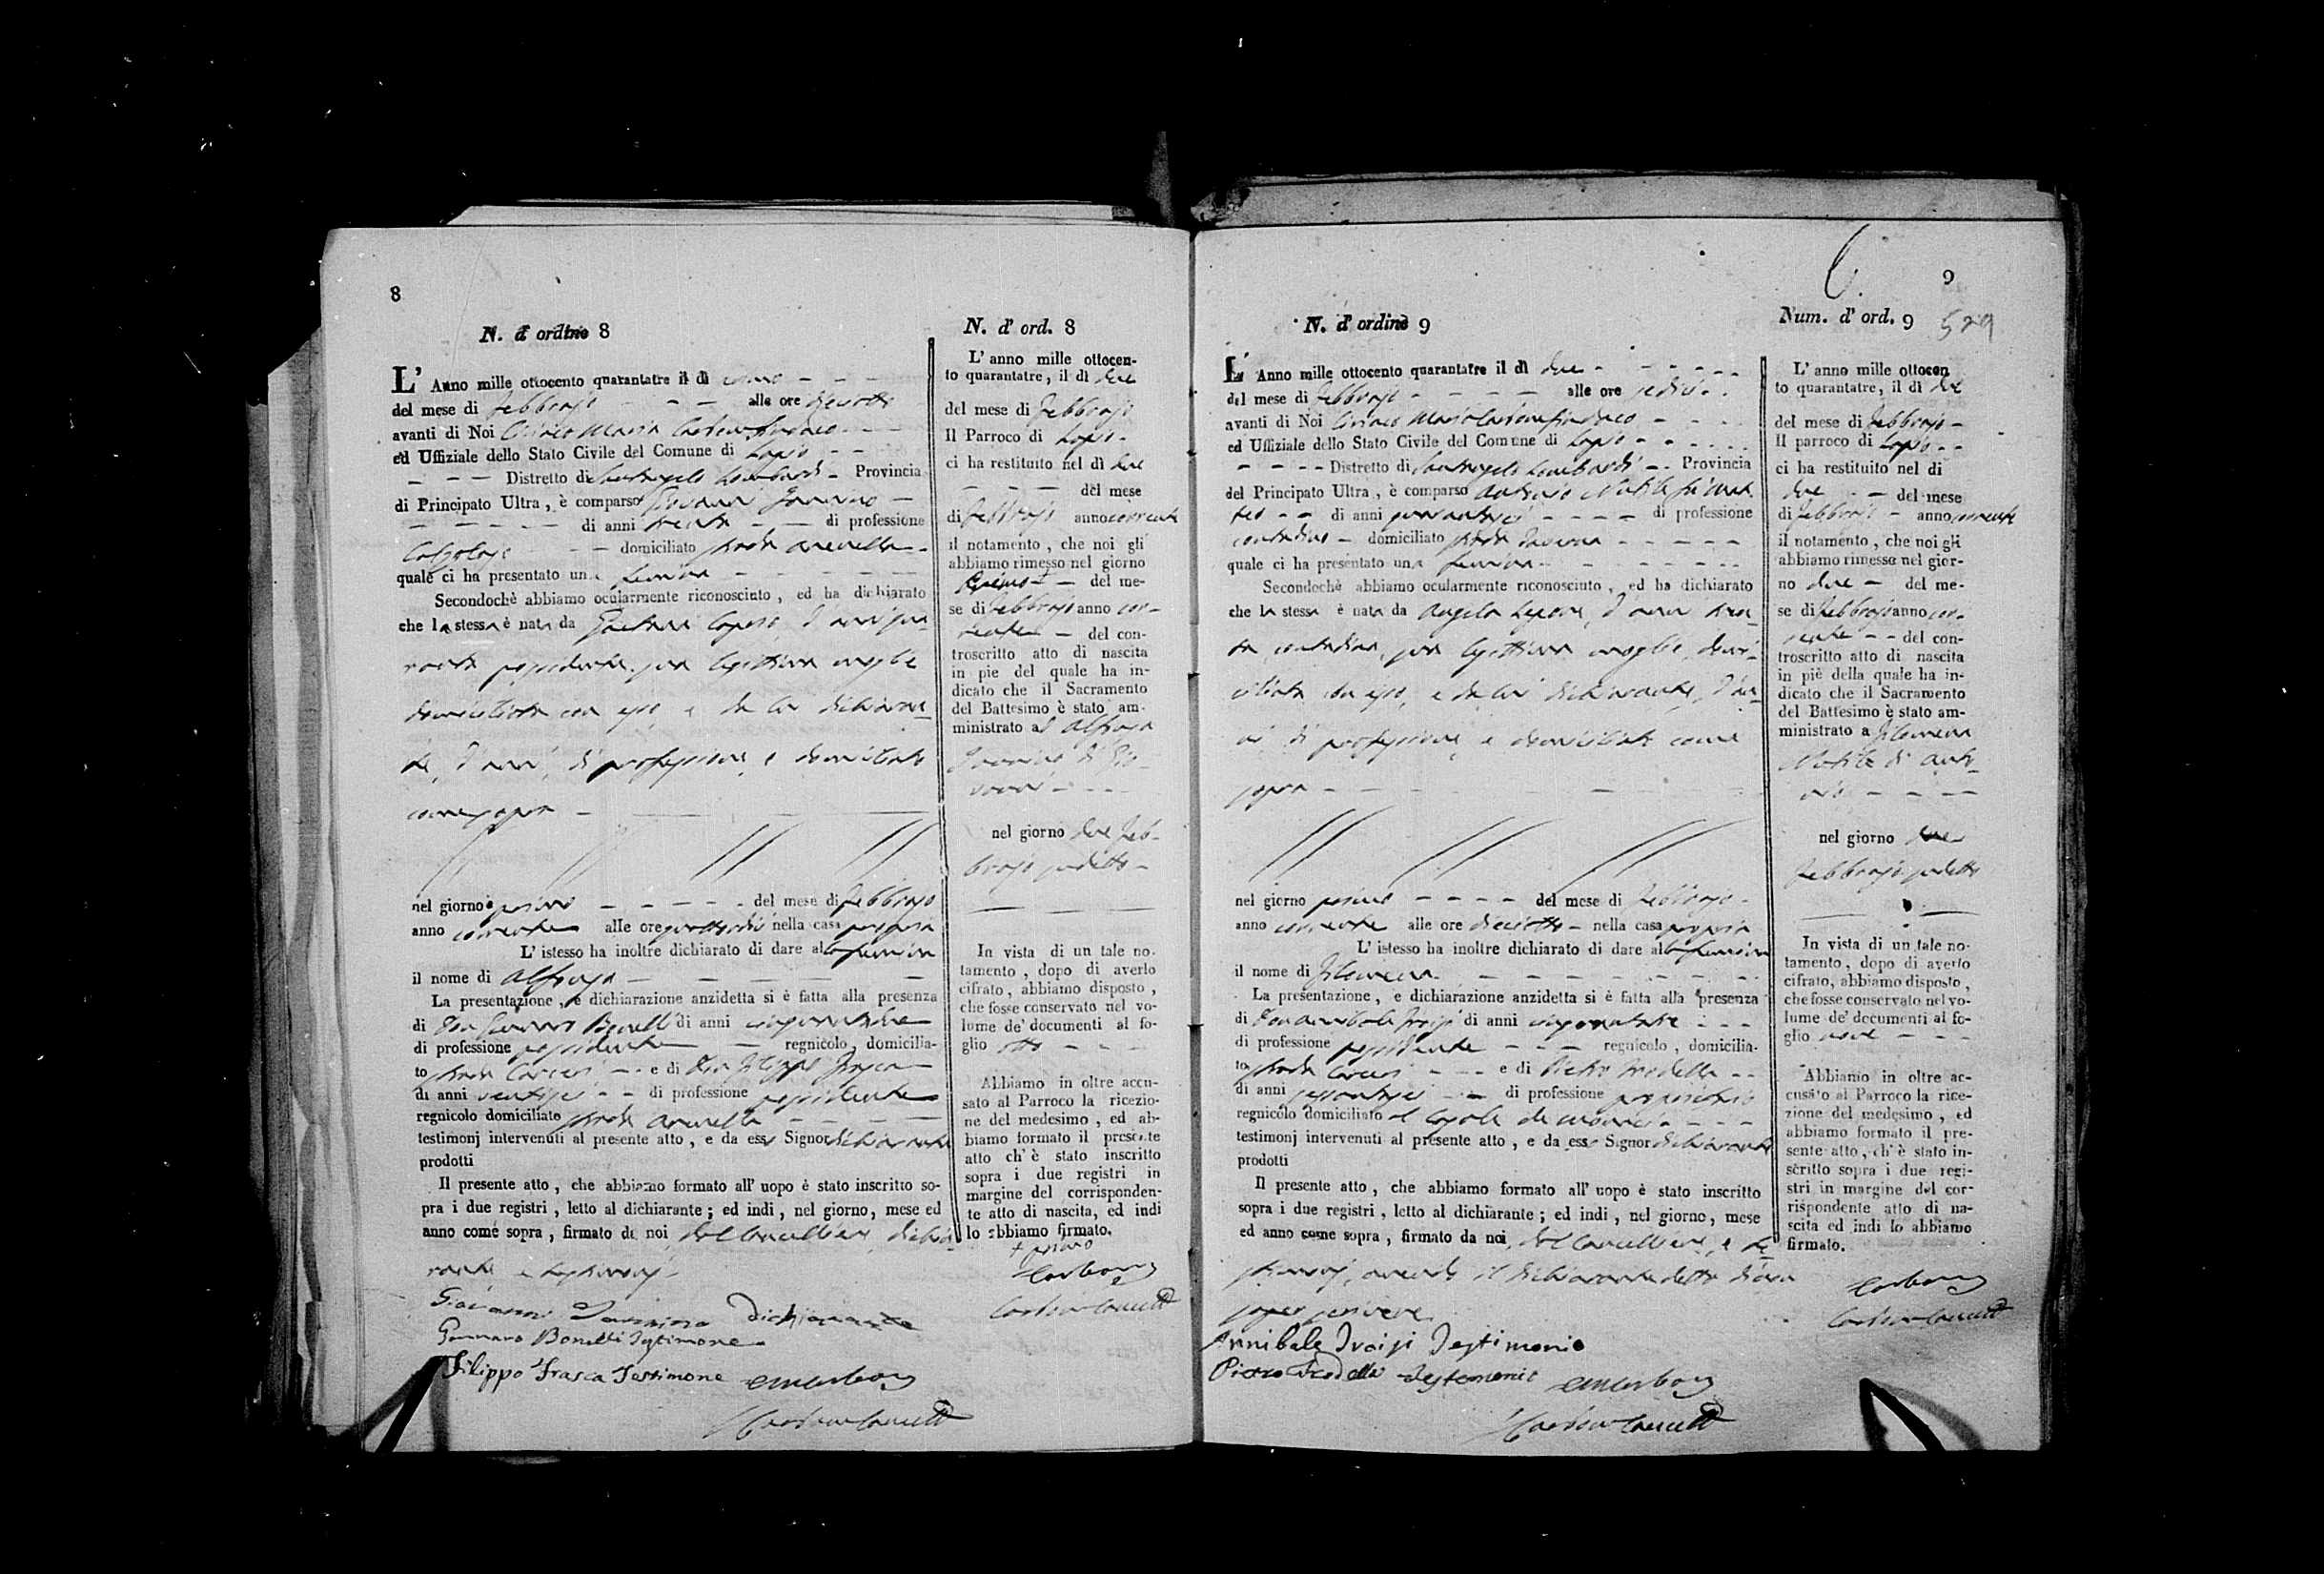 8
N. d' ordine 8
L' Anno mille ottocento quarantatre il di primo
del mese di Febbrajo alle ore dieciotto
avanti di Noi Ciriaco Maria Carbone Sindaco
ed Uffiziale dello Stato Civile del Comune di Lapio
Distretto di Santangelo Lombardi Provincia
di Principato Ultra, è comparso Giovanni
di anni trenta di professione
Calzolajo domiciliato strada
quale ci ha presentato una femina
Secondochè abbiamo ocularmente riconosciuto, ed ha dichiarato
che la stessa è nata da Gaetana d'anni qua-
ranta possidente sua legittima moglie
domiciliata con esso e da lui dichiaran-
te, d'anni, di professione, e domiciliato
come sopra
nel giorno primo del mese di Febbrajo
anno corrente alle ore quattordici nella casa propria
L' istesso ha inoltre dichiarato di dare alla femina
il nome di
La presentazione, e dichiarazione anzidetta si è fatta alla presenza
di Don Gennaro Bonelli di anni cinquantadue
di professione possidente regnicolo, domicilia-
to strada Carceri e di Don Filippo Frasca
di anni ventisei di professione possidente
regnicolo domiciliato strada
testimonj intervenuti al presente atto, e da esso Signor dichiarante
prodotti
Il presente atto, che abbiamo formato all' uopo è stato inscritto so-
pra i due registri, letto al dichiarante; ed indi, nel giorno, mese ed
anno come sopra, firmato da noi, dal Cancelliere, dichia-
rante, e testimonj
Giovanni dichiarante
Gennaro Bonelli Testimone
Filippo Frasca Testimone
N. d' ord. 8
L' anno mille ottocen-
to quarantatre, il dì due
del mese di Febbrajo
Il Parroco di Lapio
ci ha restituito nel dì due
del mese
di Febbrajo anno corrente
il notamento, che noi gli
abbiamo rimesso nel giorno
del me-
se di Febbrajo anno cor-
rente del con-
troscritto atto di nascita
in pie del quale ha in-
dicato che il Sacramento
del Battesimo è stato am-
ministrato a
di Gio-
vanni
nel giorno due Feb-
brajo sudetto
In vista di un tale no-
tamento, dopo di averlo
cifrato, abbiamo disposto,
che fosse conservato nel vo-
lume de' documenti al fo-
glio otto
Abbiamo in oltre accu-
sato al Parroco la ricezio-
ne del medesimo, ed ab-
biamo formato il presente
atto ch' è stato inscritto
sopra i due registri in
margine del corrisponden-
te atto di nascita, ed indi
lo abbiamo firmato.
+ primo
Carbone
9
N. d' ordine 9
L' Anno mille ottocento quarantatre il dì due
del mese di Febbrajo alle ore sedici
avanti di Noi Ciriaco Maria Carbone Sindaco
ed Uffiziale dello Stato Civile del Comune di Lapio
Distretto di Santangelo Lombardi Provincia
del Principato Ultra, è comparso Antonio Nutile
di anni di professione
contadino domiciliato strada
quale ci ha presentato una femina
Secondochè abbiamo ocularmente riconosciuto, ed ha dichiarato
che la stessa è nata da Angela d'anni tren-
ta, contadina, sua legittima moglie, domi-
ciliata con esso, e da lui dichiarante, d'an-
ni, di professione, e domiciliato come
sopra
nel giorno primo del mese di Febbrajo
anno corrente alle ore dieciotto nella casa propria
L' istesso ha inoltre dichiarato di dare alla femina
il nome di Filomena
La presentazione, e dichiarazione anzidetta si è fatta alla presenza
di Don Annibale di anni
di professione possidente regnicolo, domicilia-
to strada Carceri e di Pietro
di anni sessantasei di professione proprietario
regnicolo domiciliato
testimonj intervenuti al presente atto, e da esso Signor dichiarante
prodotti
Il presente atto, che abbiamo formato all' uopo è stato inscritto
sopra i due registri, letto al dichiarante; ed indi, nel giorno, mese
ed anno come sopra, firmato da noi, dal Cancelliere, e te-
stimonj, avendo il dichiarante detto di non
saper scrivere
Annibale Testimonio
Pietro Testimonio
Num. d' ord. 9
529
L' anno mille ottocen
to quarantatre, il dì due
del mese di Febbrajo
Il parroco di Lapio
ci ha restituito nel di
due del mese
di Febbrajo anno corrente
il notamento, che noi gli
abbiamo rimesso nel gior-
no due del me-
se di Febbrajo anno cor-
rente del con-
troscritto atto di nascita
in piè della quale ha in-
dicato che il Sacramento
del Battesimo è stato am-
ministrato a Filomena
Nutile di Anto-
nio
nel giorno due
Febbrajo sudetto
In vista di un tale no-
tamento, dopo di averlo
cifrato, abbiamo disposto,
che fosse conservato nel vo-
lume de' documenti al fo-
glio nove
Abbiamo in oltre ac-
cusato al Parroco la rice-
zione del medesimo, ed
abbiamo formato il pre-
sente atto, ch' è stato in-
scritto sopra i due regi-
stri in margine del cor-
rispondente atto di na-
scita ed indi lo abbiamo
firmato.
Carbone